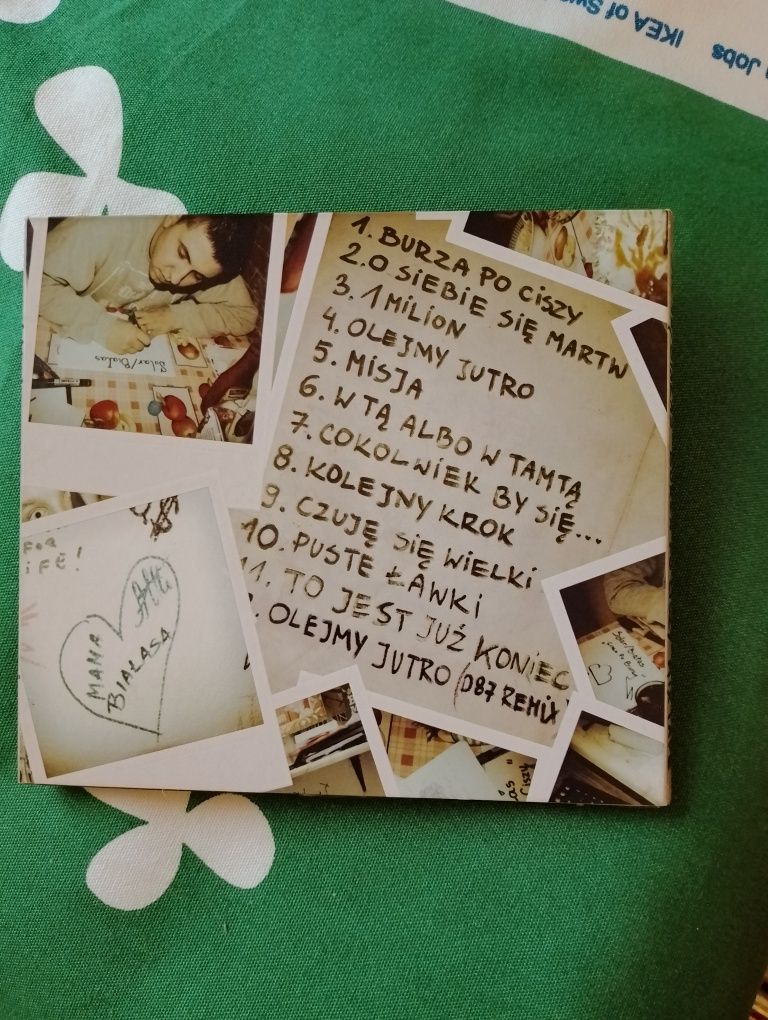 Jobs IKEA of Sw
1. BURZA PO CISZY
2. O SIEBIE SIĘ MARTW
3. 1 MILION
4. OLEJMY JUTRO
5. MISJA
6. W TĄ ALBO W TAMTĄ
7. COKOLWIEK BY SIĘ...
8. KOLEJNY KROK
9. CZUJĘ SIĘ WIELKI
10. PUSTE ŁAWKI
11. TO JEST JUŻ KONIEC
. OLEJMY JUTRO (D87 REMIX)
Solar/Białas
FOR
iFE!
MAMA
BIAŁASA
Solar/Białas
Ciszy